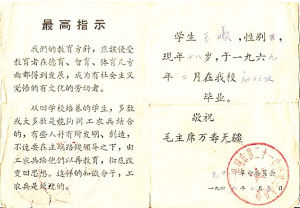 最高指示
我们的教育方针，应该使受
教育者在德育、智育、体育几方
面都得到发展，成为有社会主义
觉悟的有文化的劳动者。
从旧学校培养的学生，多数
或大多数是能够同工农兵结合
的，有些人并有所发明、创造，
不过要在正确路线领导之下，由
工农兵给他们以再教育，彻底改
变旧思想。这样的知识分子，工
农兵是欢迎的。
学生王，性别
现年十八岁，于一九六
年二月在我校
毕业。
敬祝
毛主席万寿无疆
一九六 年 月 日